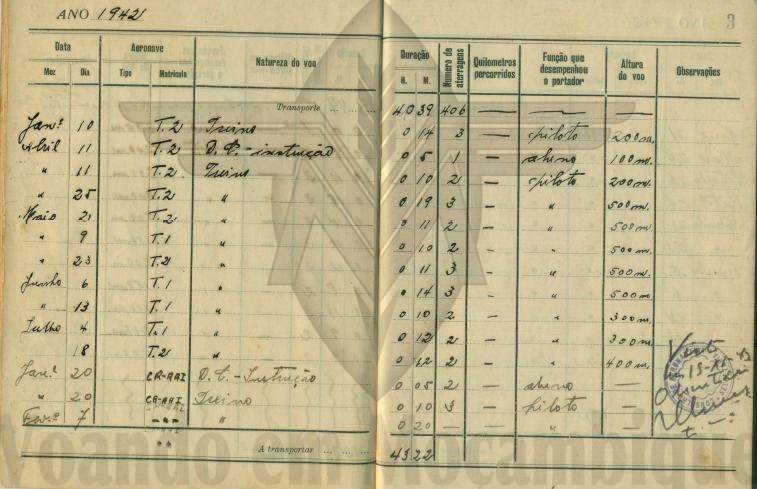 ANO 1942
3
Data Aeronave Natureza do voo Duração Número de aterragens Quilometros percorridos Função que desempenhou o portador Altura do voo Observações
Mez Dia Tipo Matricula H. M.
Transporte ... ... ... 40 39 406 — — —
Janº 10 T.2 Treino 0 14 3 — piloto 200 m.
Abril 11 T.2 D. C. - instrução 0 5 1 — aluno 100 m.
" 11 T.2 Treino 0 10 2 — piloto 200 m.
" 25 T.2 " 0 19 3 — " 500 m.
Maio 2 T.2 " 0 11 2 — " 500 m.
" 9 T.1 " 0 10 2 — " 500 m.
" 23 T.2 " 0 11 3 — " 500 m.
Junho 6 T.1 " 0 14 3 — " 500 m.
" 13 T.1 " 0 10 2 — " 300 m.
Julho 4 T.1 " 0 12 2 — " 300 m.
18 T.2 " 0 12 2 — " 400 m.
Janº 20 CR-AAI D. C. - Instrução 0 05 2 — aluno —
" 20 CR-AAI Treino 0 10 3 — piloto —
Fevº 7 " 0 20 — — " —
A transportar ... ... ... 43 22
Visto
Voando em Moçambique